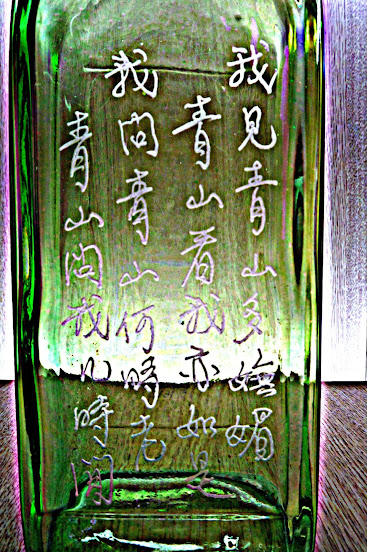 我見青山多嫵媚
青山看我亦如是
我問青山何時老
青山問我几時閒